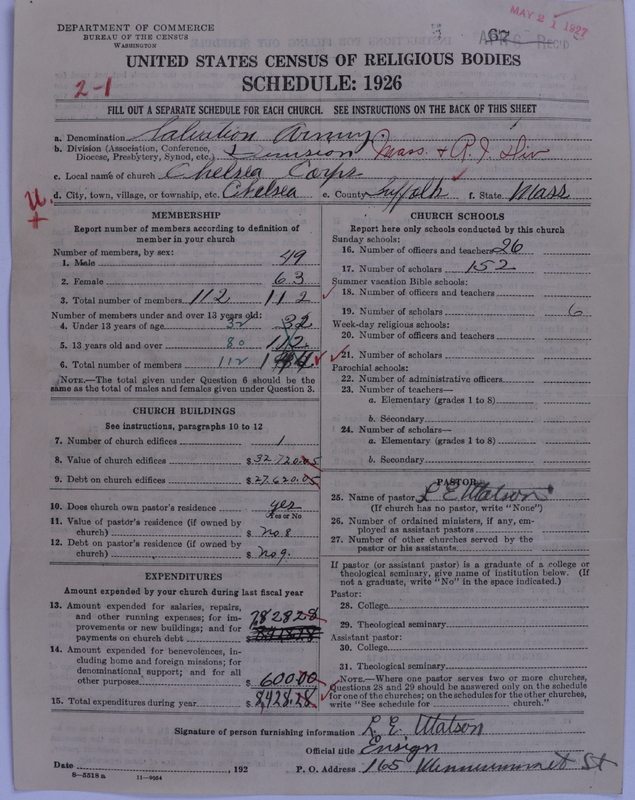 DEPARTMENT OF COMMERCE
BUREAU OF THE CENSUS
WASHINGTON
67
APR 6 REC'D
MAY 21 1927
UNITED STATES CENSUS OF RELIGIOUS BODIES
SCHEDULE: 1926
2-1
FILL OUT A SEPARATE SCHEDULE FOR EACH CHURCH. SEE INSTRUCTIONS ON THE BACK OF THIS SHEET
a. Denomination Salvation Army
b. Division (Association, Conference, Diocese, Presbytery, Synod, etc.) Division Mass. & R.I. Div
c. Local name of church Chelsea Corps
U. +
d. City, town, village, or township, etc. Chelsea e. County Suffolk f. State Mass
MEMBERSHIP
Report number of members according to definition of
member in your church
Number of members, by sex:
1. Male 49
2. Female 63
3. Total number of members 112 112
Number of members under and over 13 years old:
4. Under 13 years of age 32 32
5. 13 years old and over 80 112
6. Total number of members 112 144
NOTE.—The total given under Question 6 should be
same as the total of males and females given under Question 3.
CHURCH BUILDINGS
See instructions, paragraphs 10 to 12
7. Number of church edifices 1
8. Value of church edifices $ 32,720.05
9. Debt on church edifices $ 27,620.05
10. Does church own pastor's residence yes
Yes or No
11. Value of pastor's residence (if owned by
church) $ No 8
12. Debt on pastor's residence (if owned by
church) $ No 9.
EXPENDITURES
Amount expended by your church during last fiscal year
13. Amount expended for salaries, repairs,
and other running expenses; for im-
provements or new buildings; and for
payments on church debt $ 7,828 28
14. Amount expended for benevolences, in-
cluding home and foreign missions; for
denominational support; and for all
other purposes $ 600.00
15. Total expenditures during year $ 8,428.28
CHURCH SCHOOLS
Report here only schools conducted by this church
Sunday schools:
16. Number of officers and teachers 26
17. Number of scholars 152
Summer vacation Bible schools:
18. Number of officers and teachers
19. Number of scholars 6
Week-day religious schools:
20. Number of officers and teachers
21. Number of scholars
Parochial schools:
22. Number of administrative officers
23. Number of teachers—
a. Elementary (grades 1 to 8)
b. Secondary
24. Number of scholars—
a. Elementary (grades 1 to 8)
b. Secondary
PASTOR
25. Name of pastor L E Watson
(If church has no pastor, write "None")
26. Number of ordained ministers, if any, em-
ployed as assistant pastors
27. Number of other churches served by the
pastor or his assistants
If pastor (or assistant pastor) is a graduate of a college or
theological seminary, give name of institution below. (If
not a graduate, write "No" in the space indicated.)
Pastor:
28. College
29. Theological seminary
Assistant pastor:
30. College
31. Theological seminary
NOTE.—Where one pastor serves two or more churches,
Questions 28 and 29 should be answered only on the schedule
for one of the churches; on the schedules for the other churches,
write "See schedule for church."
Signature of person furnishing information L. E. Watson
Official title Ensign
Date , 192 P. O. Address 165 St
8-5518 a 11-9054